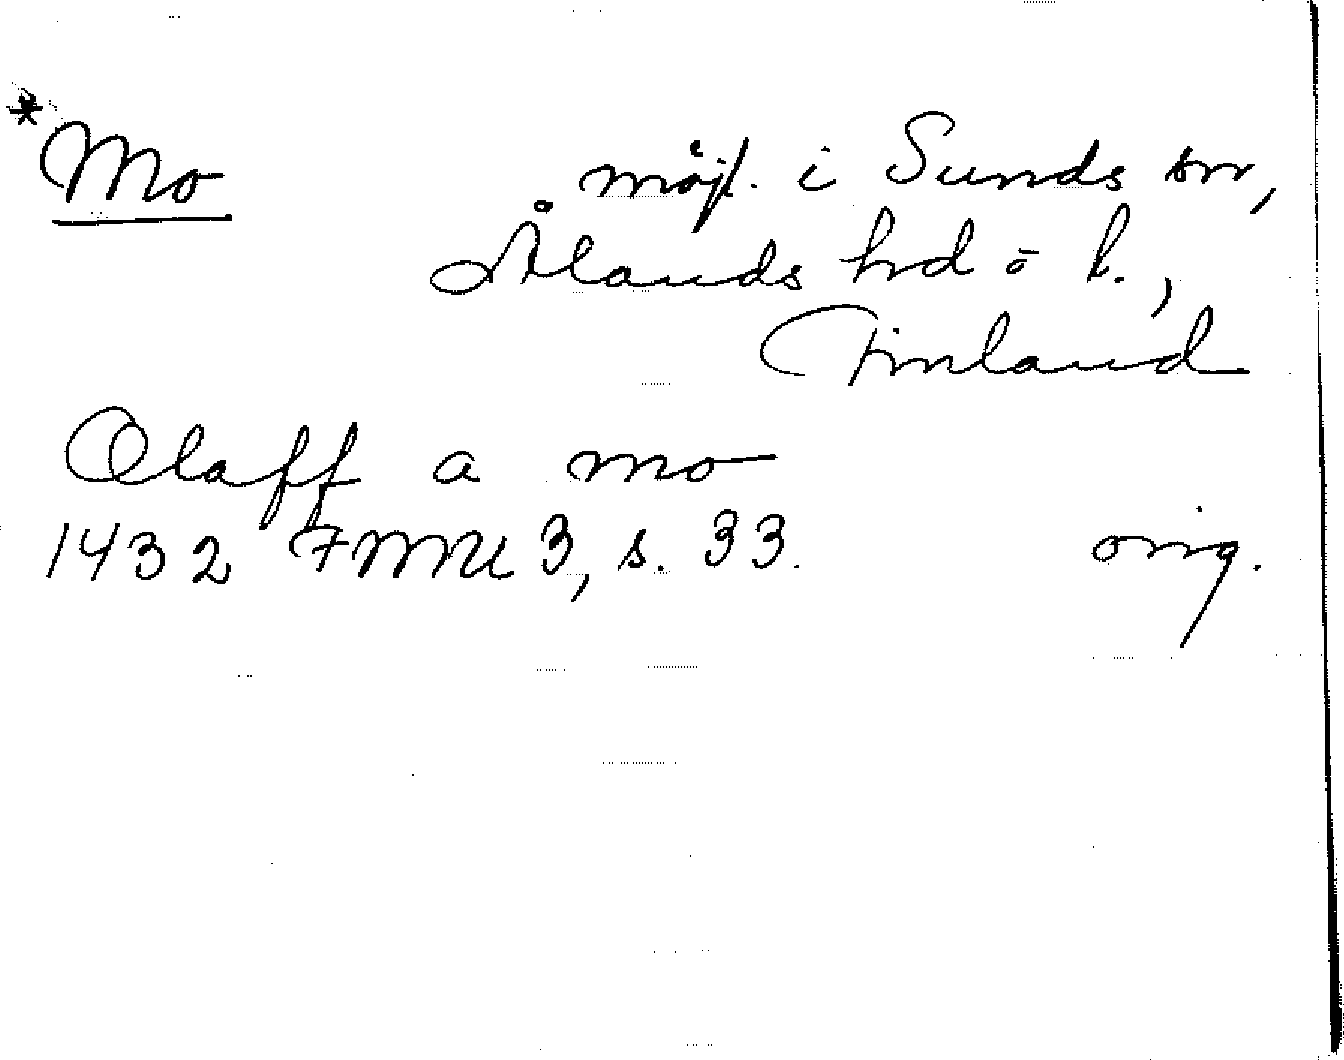 *Mo
möjl. i Sunds sn,
Ålands hd o l.,
Finland
Olaff a mo
1432 FMU 3, s. 33. orig.